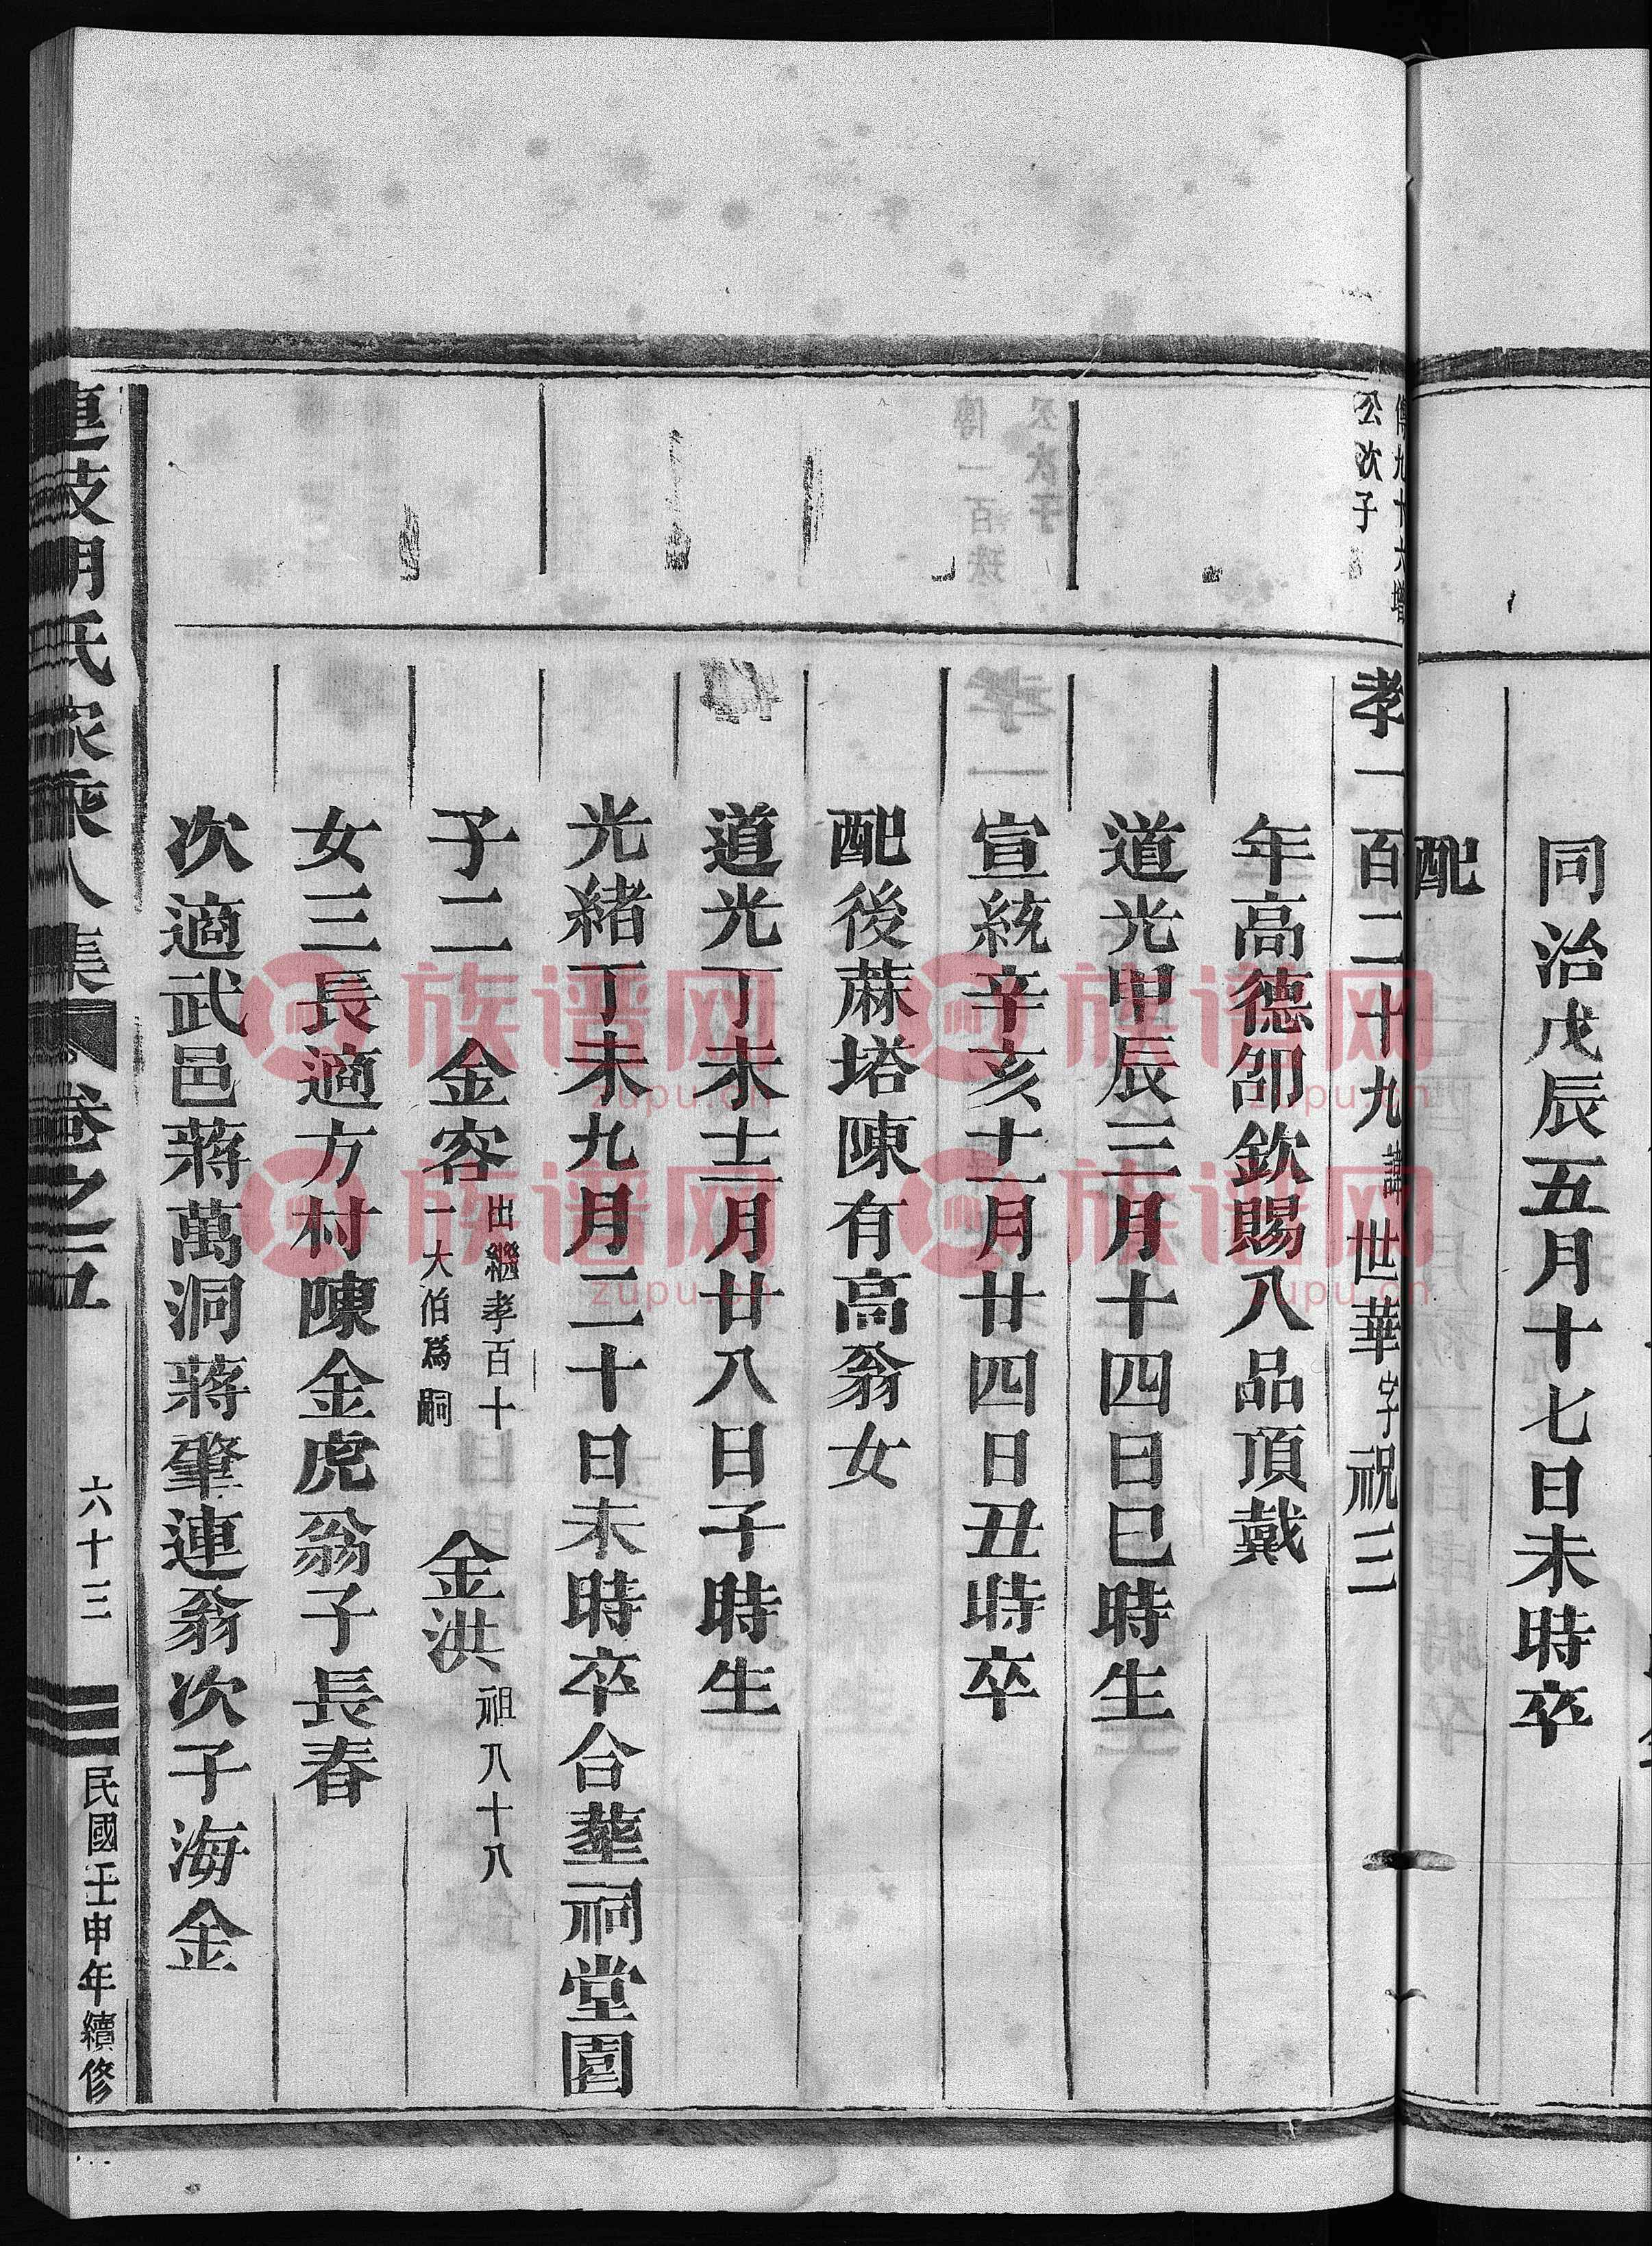 同治戊辰五月十七日未時卒
配
傳九十六增
公次子
孝一百二十九諱世華字祝三
年高德卲欽賜八品頂戴
道光甲辰三月十四日巳時生
宣統辛亥十一月廿四日丑時卒
配後蔴塔陳有高翁女
道光丁未十二月廿八日子時生
光緒丁未九月二十日未時卒合塟祠堂園
子二 金容 出繼孝百十一大伯爲嗣 金洪 祖八十八
女三長適方村陳金虎翁子長春
次適武邑蔣萬洞蔣肇連翁次子海金
胡氏家乘八集 卷之五 六十三 民國壬申年續修
族谱网
zupu.cn
族谱网
zupu.cn
族谱网
zupu.cn
族谱网
zupu.cn